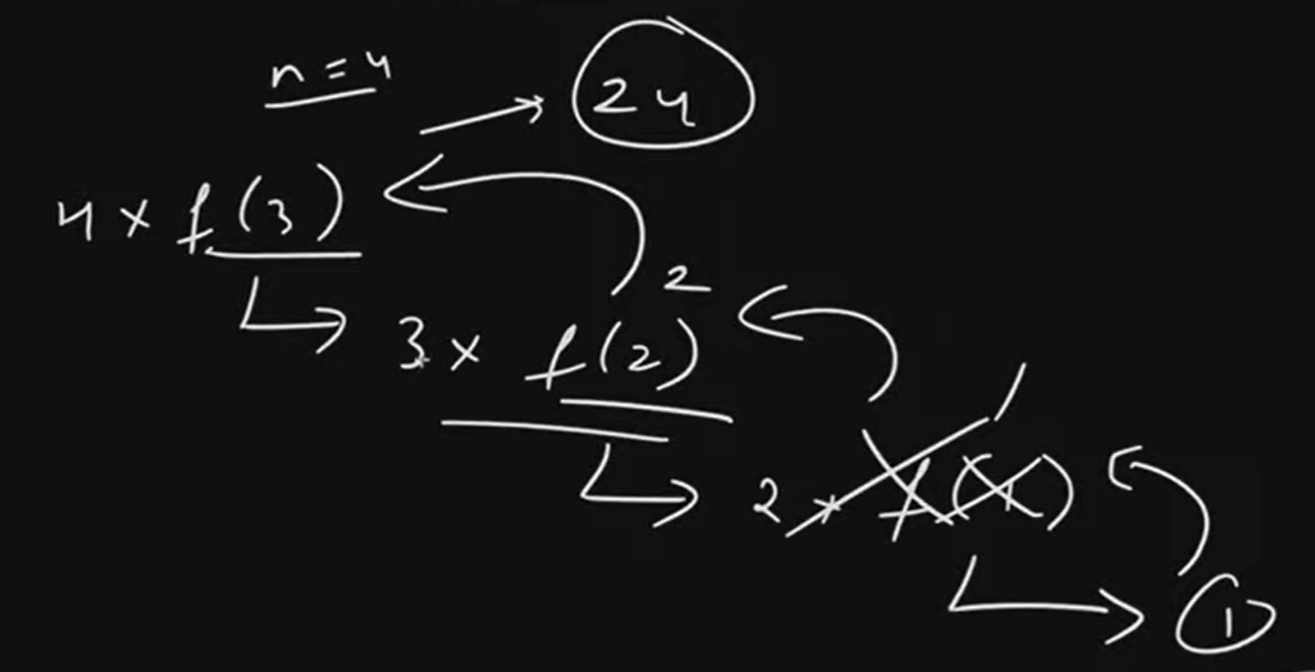 n = 4
24
4 × f(3)
2
3 × f(2)
1
2 × f(1)
1